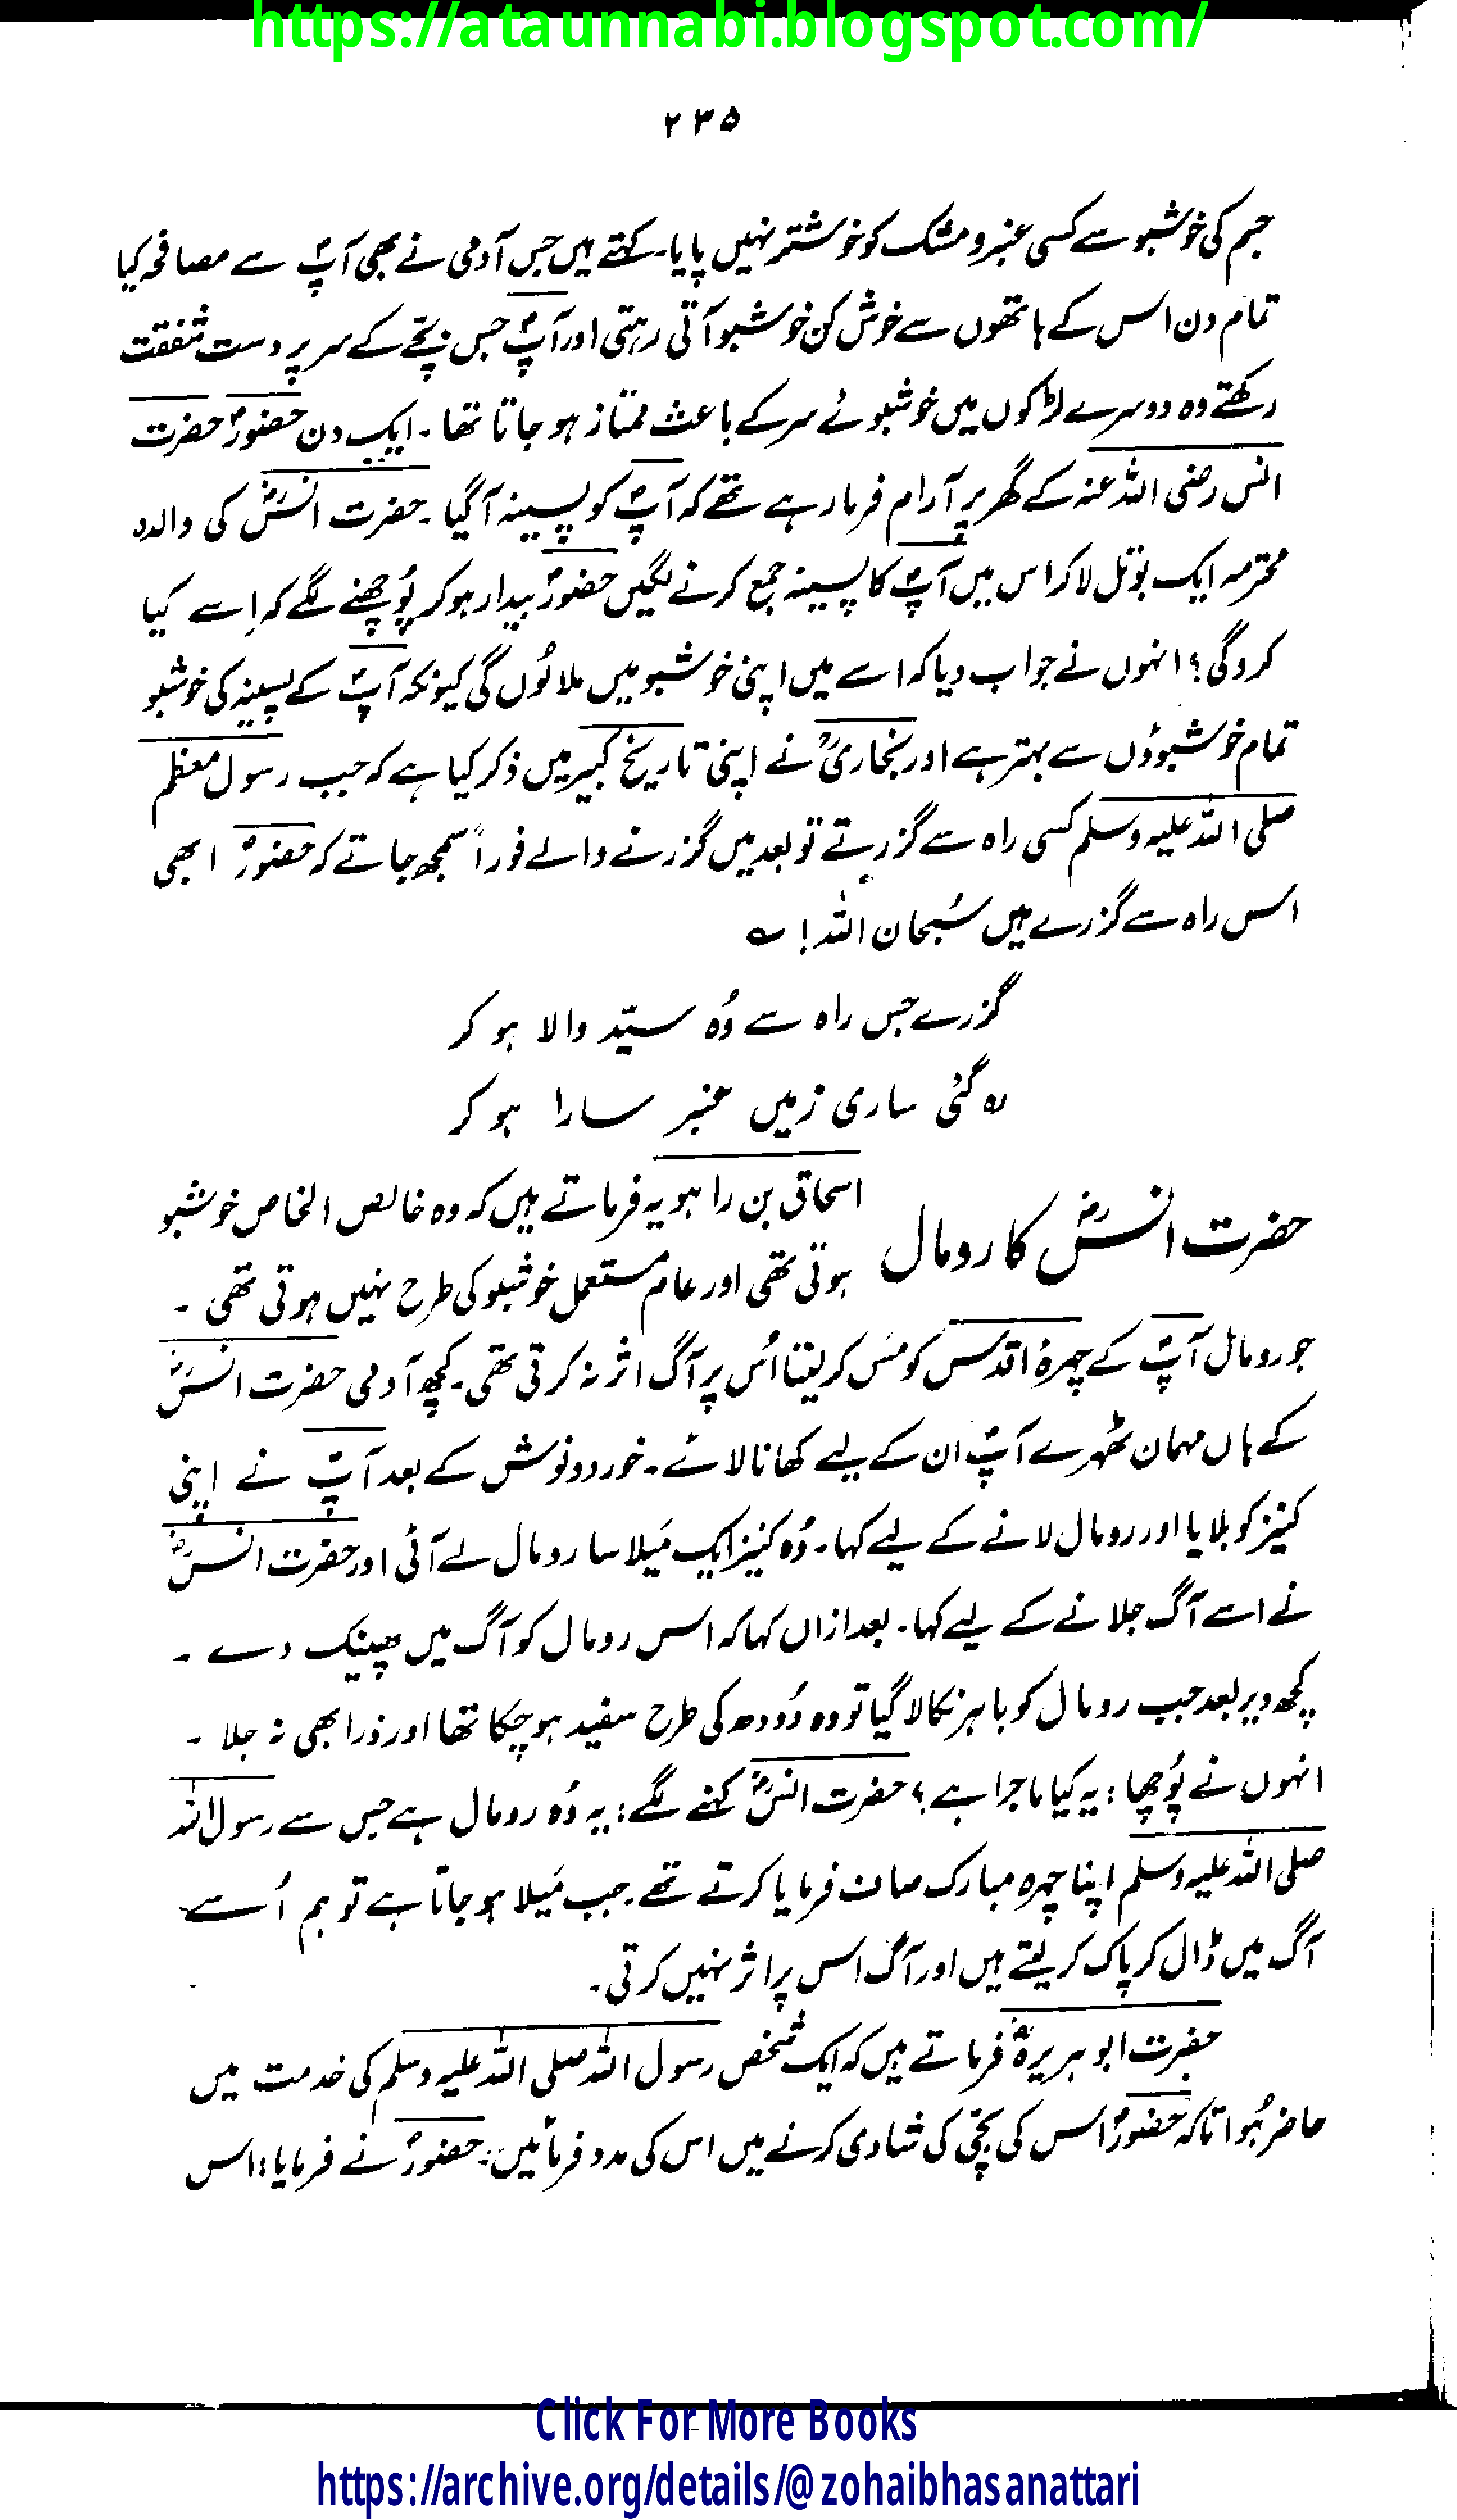 https://ataunnabi.blogspot.com/
۲۳۵
جسم کی خوشبو سے کسی عنبر و مشک کو خوشتر نہیں پایا۔ کہتے ہیں جس آدمی نے بھی آپؐ سے مصافحہ کیا
تمام دن اس کے ہاتھوں سے خوش کن خوشبو آتی رہتی اور آپؐ جس بچّے کے سر پر دست شفقت
رکھتے وہ دوسرے لڑکوں میں خوشبوئے سر کے باعث ممتاز ہو جاتا تھا۔ ایک دن حضورؐ حضرت
انس رضی اللہ عنہ کے گھر پر آرام فرما رہے تھے کہ آپؐ کو پسینہ آگیا۔ حضرت انسؓ کی والدہ
محترمہ ایک بوتل لا کر اس میں آپؐ کا پسینہ جمع کرنے لگیں حضورؐ بیدار ہو کر پُوچھنے لگے کہ اِسے کیا
کرو گی؟ انہوں نے جواب دیا کہ اسے میں اپنی خوشبو میں ملاؤں گی کیونکہ آپؐ کے پسینہ کی خوشبو
تمام خوشبوؤں سے بہتر ہے اور بخاریؒ نے اپنی تاریخ کبیر میں ذکر کیا ہے کہ جب رسول معظم
صلی اللہ علیہ وسلم کسی راہ سے گزرتے تو بعد میں گزرنے والے فوراً سمجھ جاتے کہ حضورؐ ابھی
اس راہ سے گزرے ہیں سُبحان اللہ! ؎
گزرے جس راہ سے وُہ سیّد والا ہو کر
رہ گئی ساری زمیں عنبر سارا ہو کر
حضرت انسؓ کا رومال
اسحاق بن راہویہ فرماتے ہیں کہ وہ خالص الخاص خوشبو
ہوتی تھی اور عام مستعمل خوشبو کی طرح نہیں ہوتی تھی۔
جو رومال آپؐ کے چہرۂ اقدس کو مَس کر لیتا اُس پر آگ اثر نہ کرتی تھی۔ کچھ آدمی حضرت انسؓ
کے ہاں مہمان ٹھہرے آپؓ ان کے لیے کھانا لائے۔ خورد و نوش کے بعد آپؓ نے اپنی
کنیز کو بلایا اور رومال لانے کے لیے کہا۔ وُہ کنیز ایک مَیلا سا رومال لے آئی اور حضرت انسؓ
نے اسے آگ جلانے کے لیے کہا۔ بعد ازاں کہا کہ اس رومال کو آگ میں پھینک دے۔
کچھ دیر بعد جب رومال کو باہر نکالا گیا تو وہ دُودھ کی طرح سفید ہو چکا تھا اور ذرا بھی نہ جلا۔
انہوں نے پُوچھا: یہ کیا ماجرا ہے؟ حضرت انسؓ کہنے لگے: یہ وُہ رومال ہے جس سے رسول اللہ
صلی اللہ علیہ وسلم اپنا چہرہ مبارک صاف فرمایا کرتے تھے۔ جب مَیلا ہو جاتا ہے تو ہم اُسے
آگ میں ڈال کر پاک کر لیتے ہیں اور آگ اس پر اثر نہیں کرتی۔
حضرت ابوہریرہؓ فرماتے ہیں کہ ایک شخص رسول اللہ صلی اللہ علیہ وسلم کی خدمت میں
حاضر ہُوا تاکہ حضورؐ اس کی بچّی کی شادی کرنے میں اس کی مدد فرمائیں۔ حضورؐ نے فرمایا: اس
Click For More Books
https://archive.org/details/@zohaibhasanattari